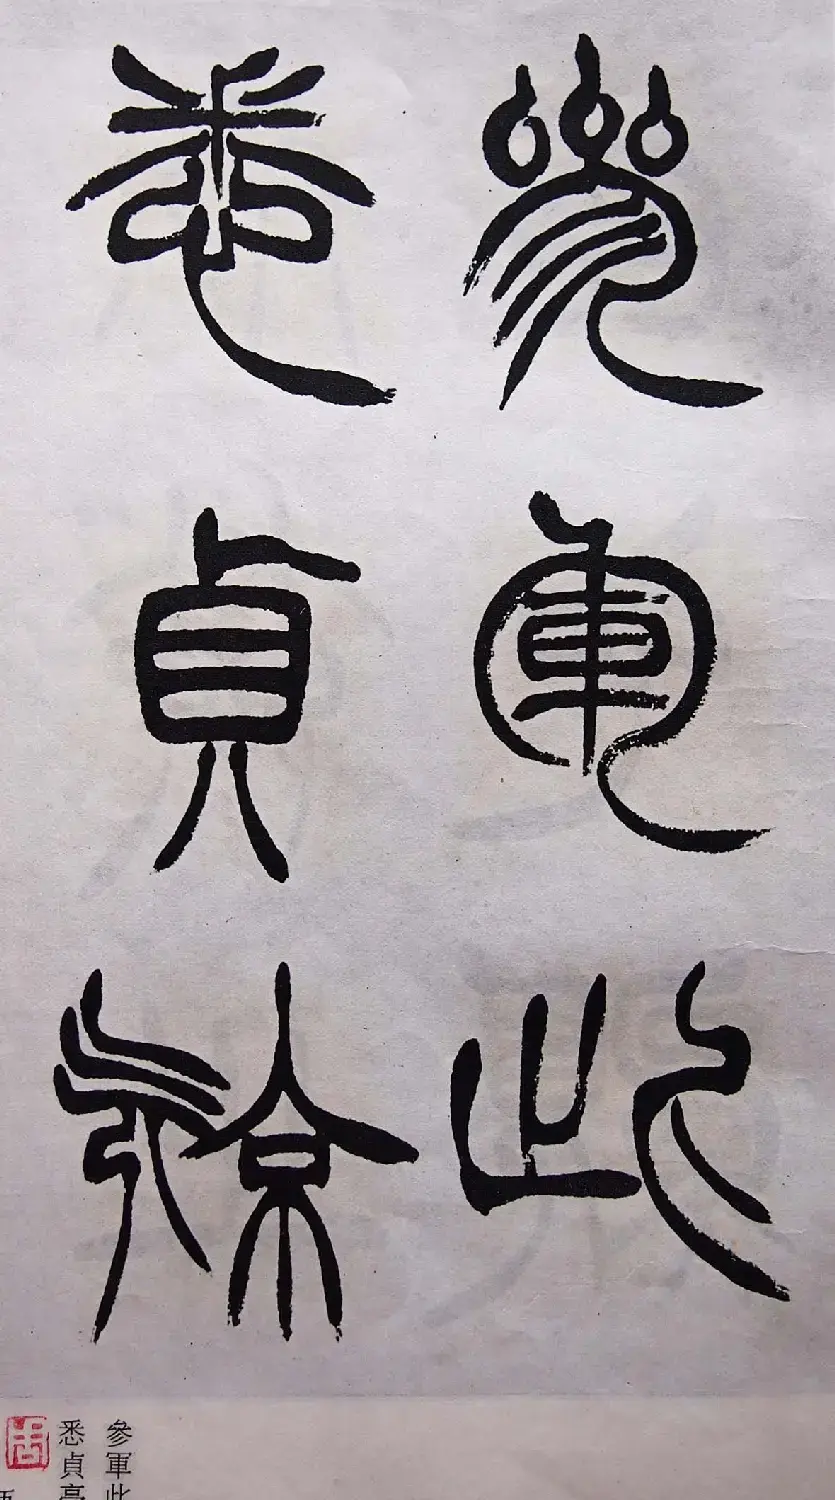 參軍此
悉貞亮
參軍此
悉貞亮